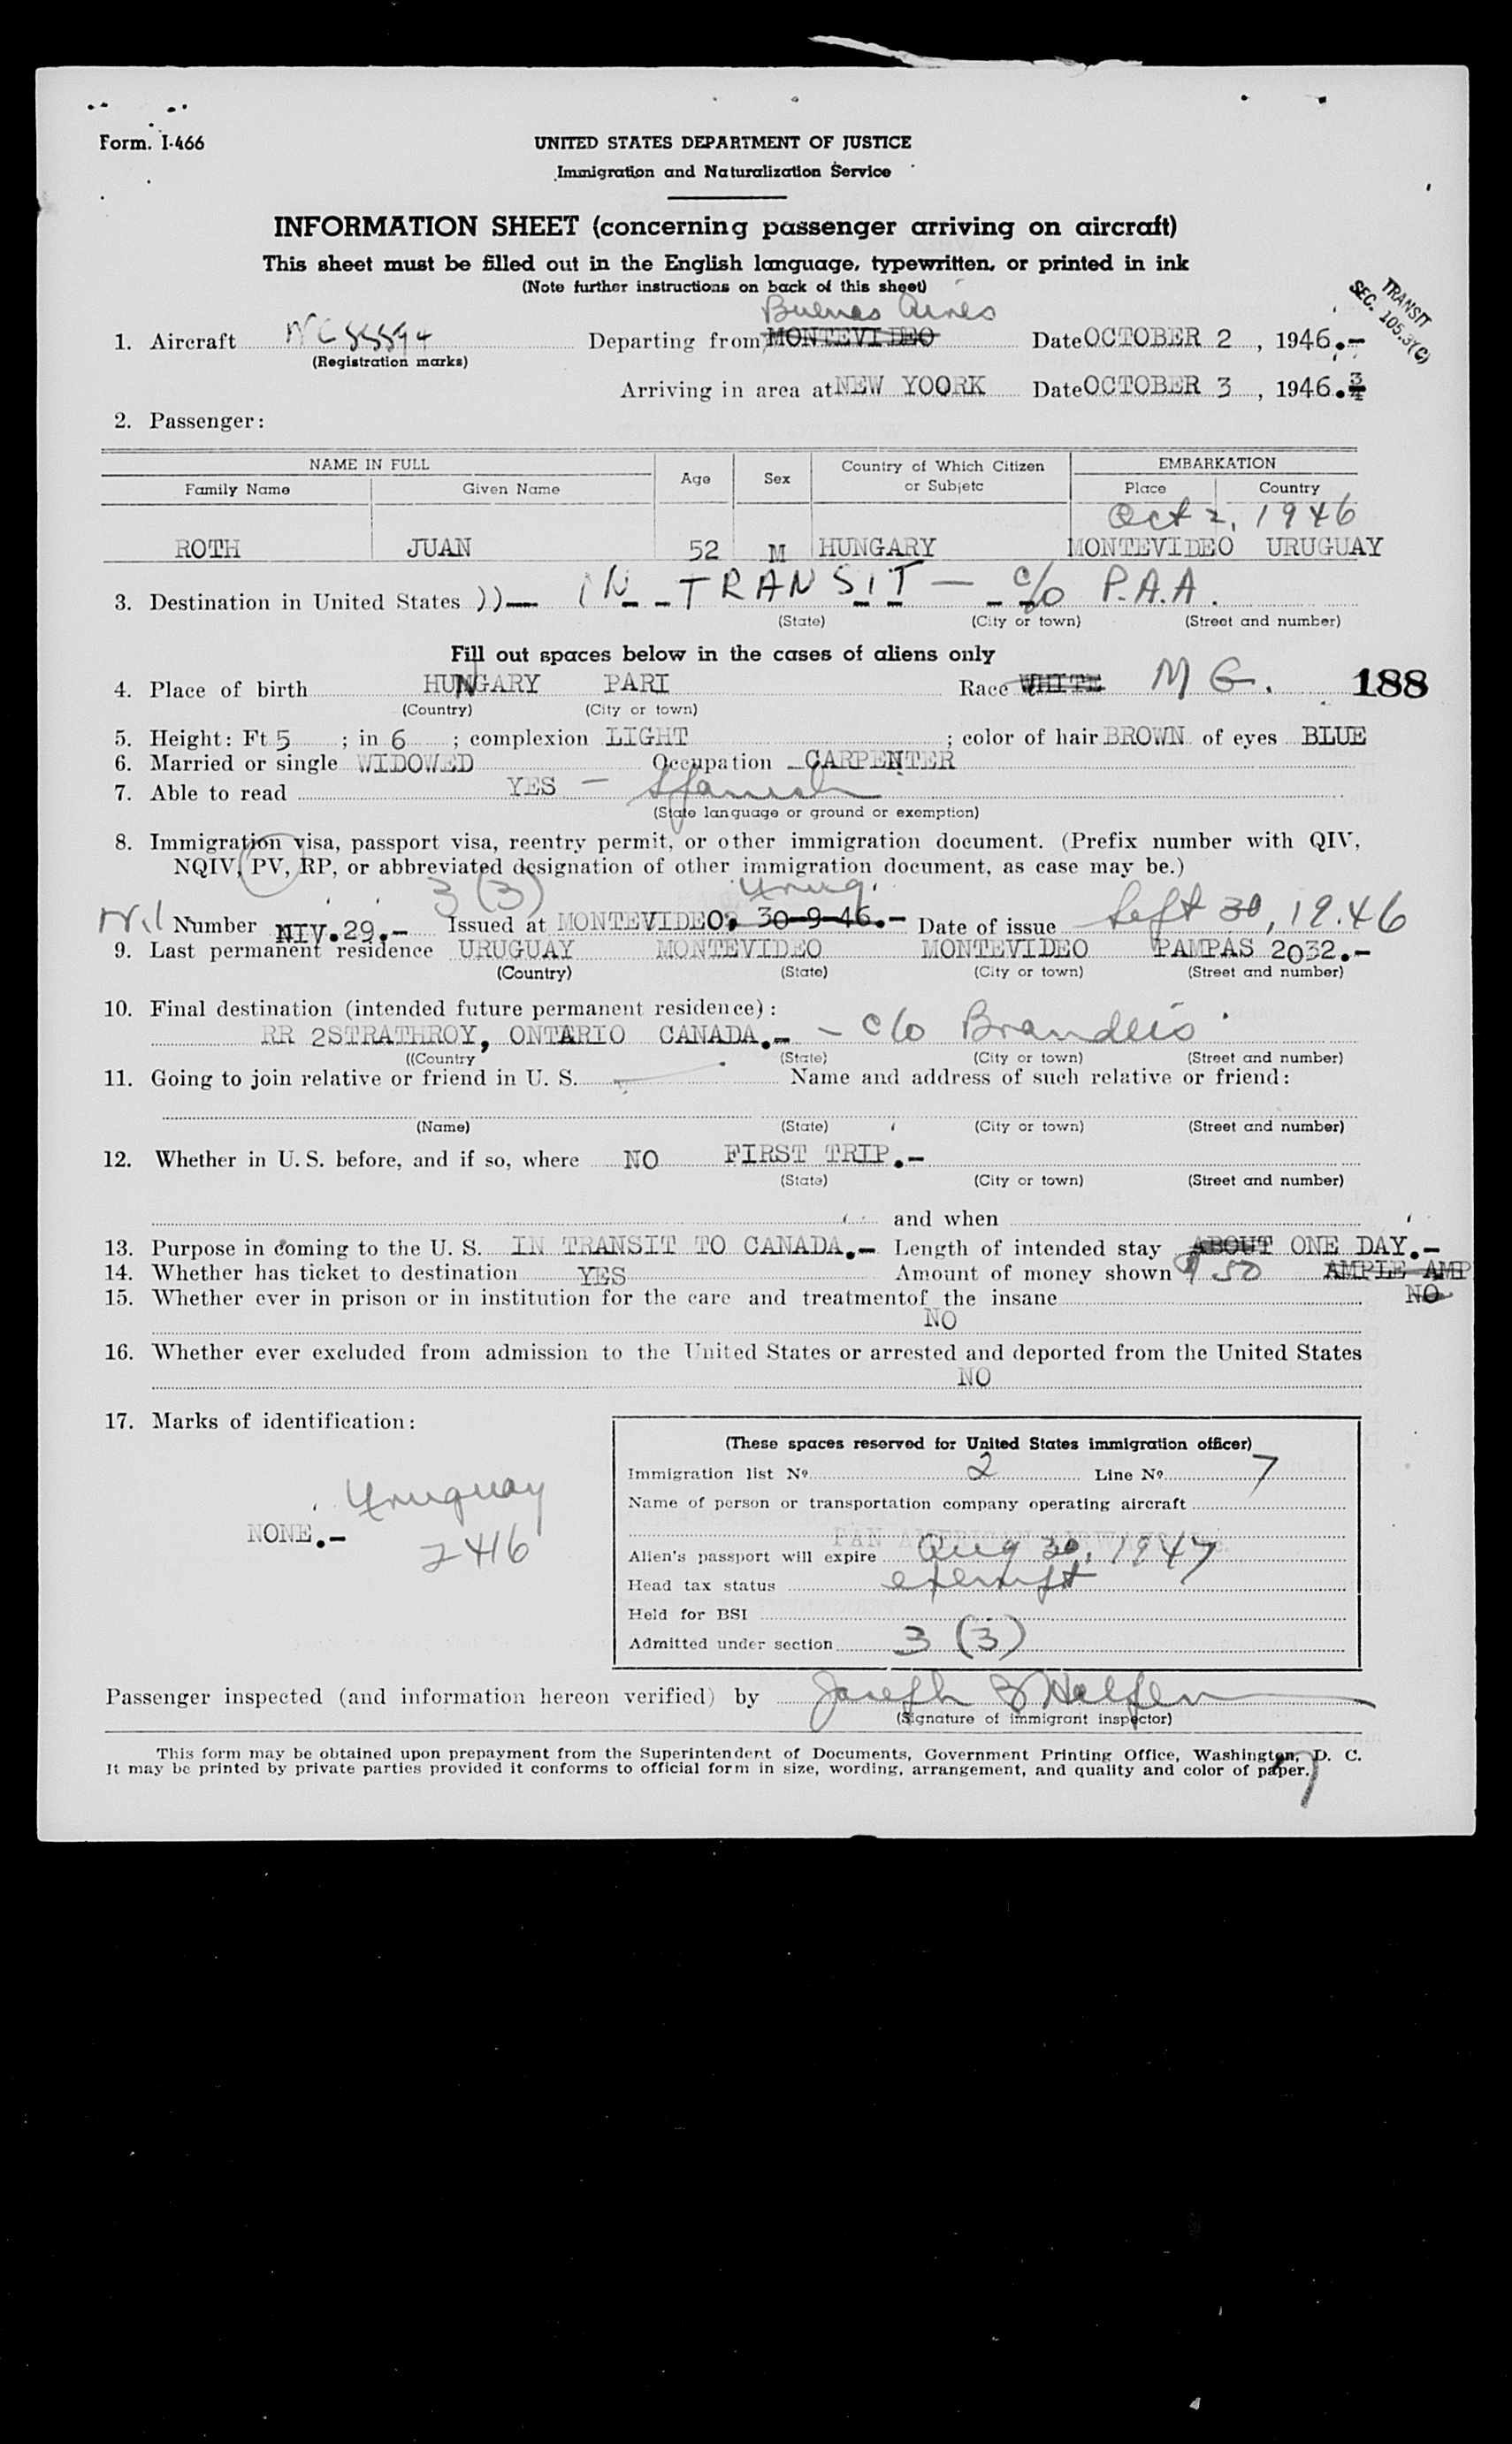 Form. I-466
UNITED STATES DEPARTMENT OF JUSTICE
Immigration and Naturalization Service
INFORMATION SHEET (concerning passenger arriving on aircraft)
This sheet must be filled out in the English language, typewritten, or printed in ink
(Note further instructions on back of this sheet)
TRANSIT
SEC. 105.3(C)
Buenos Aires
1. Aircraft NC 88894 Departing from MONTEVIDEO Date OCTOBER 2, 1946.-
(Registration marks)
Arriving in area at NEW YOORK Date OCTOBER 3, 1946.
2. Passenger:
NAME IN FULL Age Sex Country of Which Citizen or Subjetc EMBARKATION
Family Name Given Name Place Country
Oct 2, 1946
ROTH JUAN 52 M HUNGARY MONTEVIDEO URUGUAY
3. Destination in United States ))— IN TRANSIT — c/o P.A.A.
(State) (City or town) (Street and number)
Fill out spaces below in the cases of aliens only
4. Place of birth HUNGARY PARI Race WHITE M G. 188
(Country) (City or town)
5. Height: Ft 5 ; in 6 ; complexion LIGHT ; color of hair BROWN of eyes BLUE
6. Married or single WIDOWED Occupation CARPENTER
7. Able to read YES — Spanish
(State language or ground or exemption)
8. Immigration visa, passport visa, reentry permit, or other immigration document. (Prefix number with QIV,
NQIV, PV, RP, or abbreviated designation of other immigration document, as case may be.)
3 (3) Urug.
Number NIV.29.- Issued at MONTEVIDEO, 30-9-46.- Date of issue Sept 30, 1946
9. Last permanent residence URUGUAY MONTEVIDEO MONTEVIDEO PAMPAS 2032.-
(Country) (State) (City or town) (Street and number)
10. Final destination (intended future permanent residence):
RR 2STRATHROY, ONTARIO CANADA.- - c/o Brandeis
((Country (State) (City or town) (Street and number)
11. Going to join relative or friend in U. S. Name and address of such relative or friend:
(Name) (State) (City or town) (Street and number)
12. Whether in U. S. before, and if so, where NO FIRST TRIP.-
(State) (City or town) (Street and number)
and when
13. Purpose in coming to the U. S. IN TRANSIT TO CANADA.- Length of intended stay ABOUT ONE DAY.-
14. Whether has ticket to destination YES Amount of money shown $ 50 AMPLE AMP
15. Whether ever in prison or in institution for the care and treatmentof the insane NO
NO
16. Whether ever excluded from admission to the United States or arrested and deported from the United States
NO
17. Marks of identification:
(These spaces reserved for United States immigration officer)
Immigration list Nº 2 Line Nº 7
Uruguay
Name of person or transportation company operating aircraft
NONE.-
PAN AMERICAN
2416
Alien's passport will expire Aug 30, 1947
Head tax status exempt
Held for BSI
Admitted under section 3 (3)
Passenger inspected (and information hereon verified) by Joseph Halfen
(Signature of immigrant inspector)
This form may be obtained upon prepayment from the Superintendent of Documents, Government Printing Office, Washington, D. C.
It may be printed by private parties provided it conforms to official form in size, wording, arrangement, and quality and color of paper.